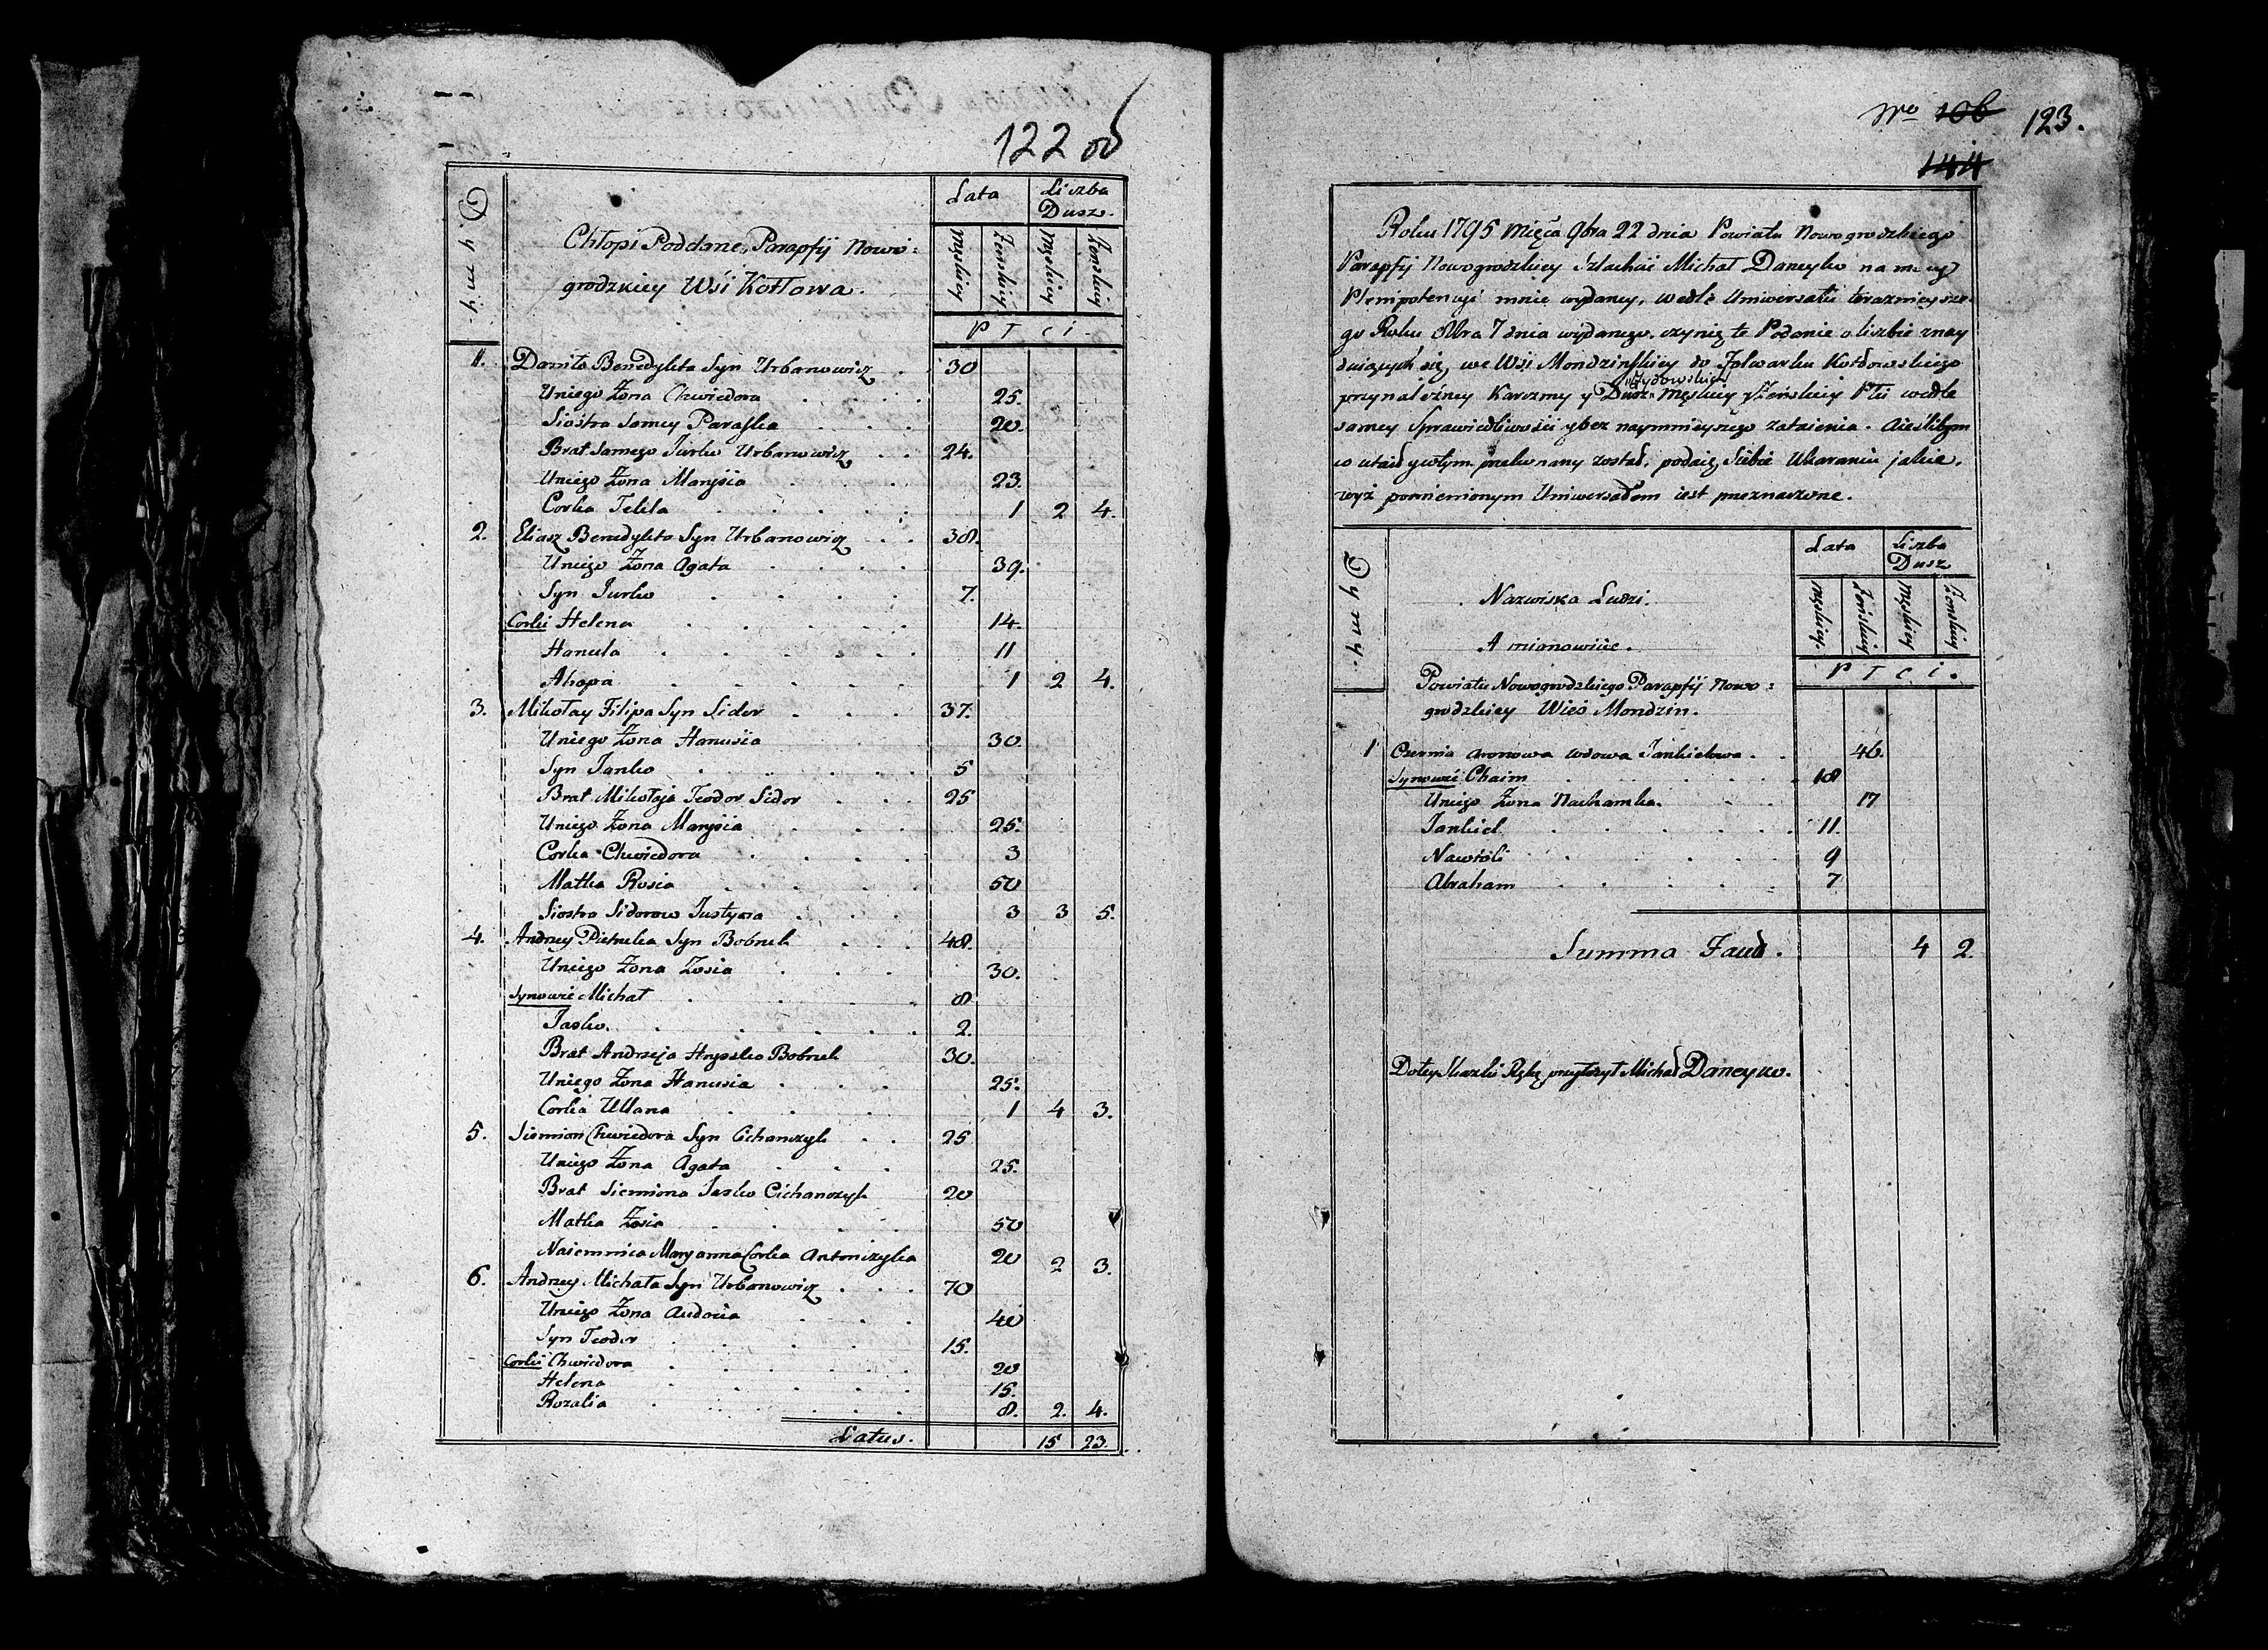 122 об
Dymy.
Chłopi Poddane, Parafij Nowo=
grodzkiey Wsi Kottowa.
Lata
Liczba Dusz.
męskiey
Żeńskiey
męskiey
Żeńskiey
Płci.
1. Daniło Benedykta Syn Urbanowicz 30
Uniego Żona Chwiedora 25.
Siostra Samey Paraska 20.
Brat Samego Jurko Urbanowicz 24.
Uniego Żona Marysia 23.
Corka Tekla 1 2 4.
2. Eliasz Benedykta Syn Urbanowicz 38.
Uniego Żona Agata 39.
Syn Jurko 7.
Corki Helena 14.
Hanula 11
Ahapa 1 2 4.
3. Mikołay Filipa Syn Sidor 37.
Uniego Żona Hanusia 30
Syn Janko 5
Brat Mikołaja Teodor Sidor 25
Uniego Żona Marysia 25.
Corka Chwiedora 3
Matka Rosia 50
Siostra Sidorow Justyna 3 3 5.
4. Andrzey Pietruka Syn Bobruk 48.
Uniego Żona Zosia 30.
Synowie Michał 8
Jasko 2.
Brat Andrzeja Hryszko Bobruk 30.
Uniego Żona Hanusia 25.
Corka Ullana 1 4 3.
5. Siemion Chwiedora Syn Cichanczyk 25
Uniego Żona Agata 25.
Brat Siemiona Jasko Cichanczyk 20
Matka Zosia 50
Naiemnica Maryanna Corka Antonczyka 20 2 3.
6. Andrzey Michała Syn Urbanowicz 70
Uniego Żona Audocia 40
Syn Teodor 15.
Corki Chwiedora 20
Helena 15.
Rozalia 8. 2. 4.
Latus. 15 23.
Nro 106 123.
144
Roku 1795 Mięca 9bra 22 dnia Powiatu Nowogrodzkiego
Parafij Nowogrodzkiey Szlachcic Michał Daneyko na mocy
Plenipotencyi mnie wydaney, wedle Uniwersału teraznieysze-
go Roku 8bra 7 dnia wydanego, czynię te Podanie o liczbie znay
duiących się, we Wsi Mondzinskiey do Folwarku Kottowskiego
przynależney Karczmy y Dusz Żydowskich Męskiey y Żeńskiey Płci wedle
samey Sprawiedliwości y bez naymnieyszego zataienia. Aieślibym
co utaił y wtym przekonany został, podaię Siebie Ukaraniu jakie,
wyż pomienionym Uniwersałem iest przeznaczone.
Dymy.
Nazwiska Ludzi.
A mianowicie.
Lata
Liczba Dusz
męskiey.
Żeńskiey
męskiey
Żeńskiey
Płci.
Powiatu Nowogrodzkiego Parafij Nowo=
grodzkiey Wieś Mondzin.
1 Czernia Aronowa wdowa Jankielowa 46.
Synowie Chaim 18
Uniego Żona Nachamka 17
Jankiel 11.
Nawtoli 9
Abraham 7
Summa Facit. 4 2.
Dotey Skazki Rękę przyłożył Michał Daneyko.